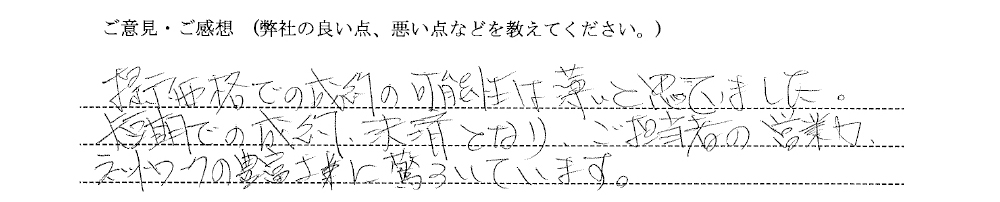 ご意見・ご感想　(弊社の良い点、悪い点などを教えてください。)
提示価格での成約の可能性は薄いと思ってました。
短期での成約、決済となり、ご担当者の営業力、
ネットワークの豊富さに驚ろいています。